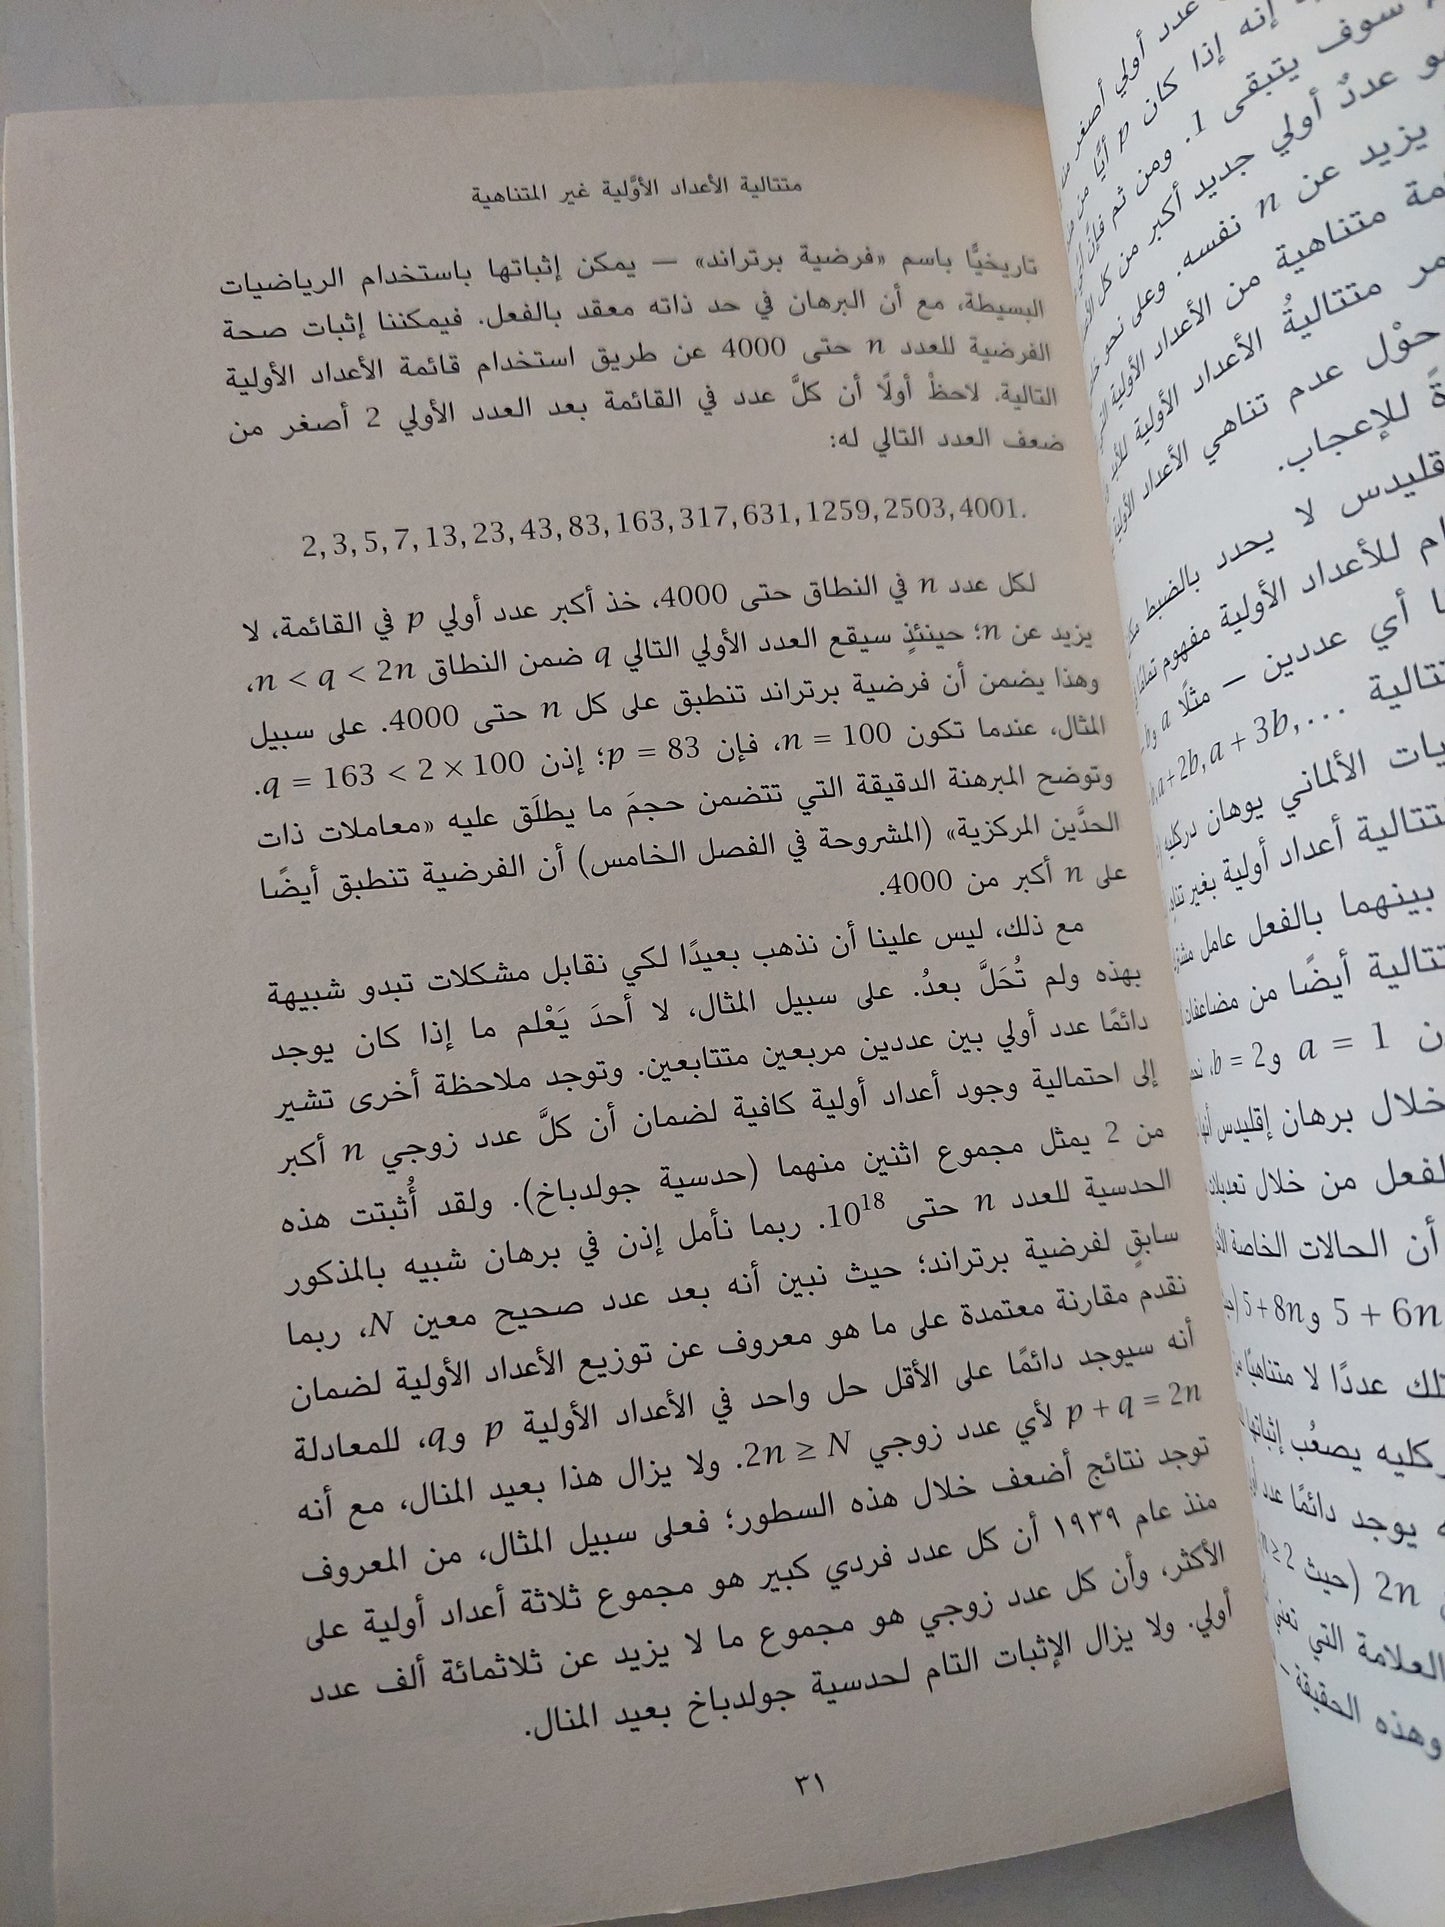 متتالية الأعداد الأوَّلية غير المتناهية
تاريخيًّا باسم «فرضية برتراند» — يمكن إثباتها باستخدام الرياضيات
البسيطة، مع أن البرهان في حد ذاته معقد بالفعل. فيمكننا إثبات صحة
الفرضية للعدد n حتى 4000 عن طريق استخدام قائمة الأعداد الأولية
التالية. لاحظْ أولًا أن كلَّ عدد في القائمة بعد العدد الأولي 2 أصغر من
ضعف العدد التالي له:
2, 3, 5, 7, 13, 23, 43, 83, 163, 317, 631, 1259, 2503, 4001.
لكل عدد n في النطاق حتى 4000، خذ أكبر عدد أولي p في القائمة، لا
يزيد عن n؛ حينئذٍ سيقع العدد الأولي التالي q ضمن النطاق n < q < 2n،
وهذا يضمن أن فرضية برتراند تنطبق على كل n حتى 4000. على سبيل
المثال، عندما تكون n = 100، فإن p = 83؛ إذن q = 163 < 2 × 100.
وتوضح المبرهنة الدقيقة التي تتضمن حجمَ ما يطلَق عليه «معاملات ذات
الحدَّين المركزية» (المشروحة في الفصل الخامس) أن الفرضية تنطبق أيضًا
على n أكبر من 4000.
مع ذلك، ليس علينا أن نذهب بعيدًا لكي نقابل مشكلات تبدو شبيهة
بهذه ولم تُحَلَّ بعدُ. على سبيل المثال، لا أحدَ يَعْلم ما إذا كان يوجد
دائمًا عدد أولي بين عددين مربعين متتابعين. وتوجد ملاحظة أخرى تشير
إلى احتمالية وجود أعداد أولية كافية لضمان أن كلَّ عدد زوجي n أكبر
من 2 يمثل مجموع اثنين منهما (حدسية جولدباخ). ولقد أُثبتت هذه
الحدسية للعدد n حتى 10¹⁸. ربما نأمل إذن في برهان شبيه بالمذكور
سابقٍ لفرضية برتراند؛ حيث نبين أنه بعد عدد صحيح معين N، ربما
نقدم مقارنة معتمدة على ما هو معروف عن توزيع الأعداد الأولية لضمان
أنه سيوجد دائمًا على الأقل حل واحد في الأعداد الأولية p وq، للمعادلة
p + q = 2n لأي عدد زوجي 2n ≥ N. ولا يزال هذا بعيد المنال، مع أنه
توجد نتائج أضعف خلال هذه السطور؛ فعلى سبيل المثال، من المعروف
منذ عام ١٩٣٩ أن كل عدد فردي كبير هو مجموع ثلاثة أعداد أولية على
الأكثر، وأن كل عدد زوجي هو مجموع ما لا يزيد عن ثلاثمائة ألف عدد
أولي. ولا يزال الإثبات التام لحدسية جولدباخ بعيد المنال.
٣١
عدد أولي أصغر
إنه إذا كان p أيًّا من
سوف يتبقى 1. ومن ثم فإن
عددٌ أولي جديد أكبر من كل
يزيد عن n نفسه. وعلى نحو
متناهية من الأعداد الأولية
متتاليةُ الأعداد الأولية
حوْل عدم تناهي الأعداد الأولية
للإعجاب.
لا يحدد بالضبط
للأعداد الأولية مفهوم
أي عددين — مثلًا a
a + 2b, a + 3b, …
الألماني يوهان دركليه
أعداد أولية بغير
بينهما بالفعل عامل
أيضًا من مضاعفات
a = 1 وb = 2،
خلال برهان إقليدس
من خلال تعديلات
أن الحالات الخاصة
5 + 6n و5 + 8n
عددًا لا متناهيًا
يصعُب إثباتها
يوجد دائمًا عدد
2n (حيث n ≥ 2
العلامة التي تعني
وهذه الحقيقة